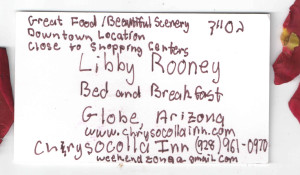 Great Food/Beautiful Scenery
Downtown Location
Close to Shopping Centers
Libby Rooney
Bed and Breakfast
Globe, Arizona
www.chrysocollainn.com
Chrysocolla Inn (928) 961-0970
weekendzona@gmail.com